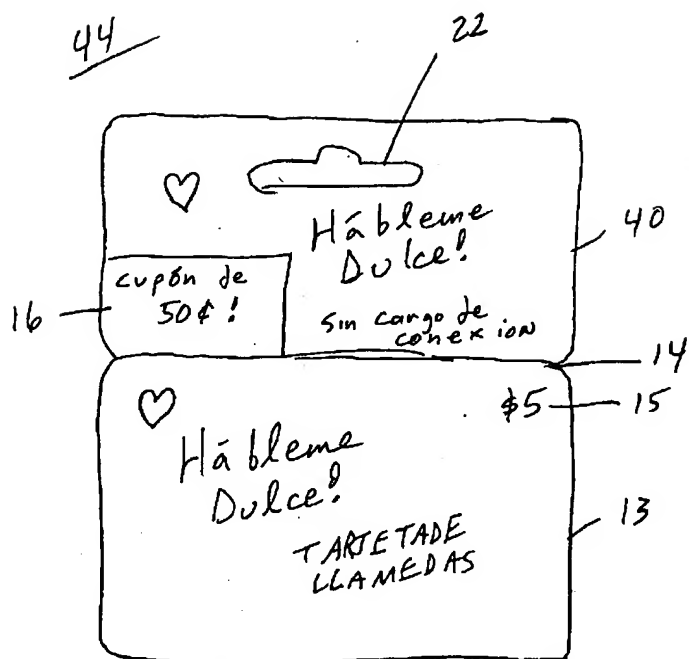 44
22
Hábleme
Dulce!
40
cupón de
50¢!
16
Sin cargo de
conexion
14
$5
15
Hábleme
Dulce!
13
TARJETADE
LLAMEDAS